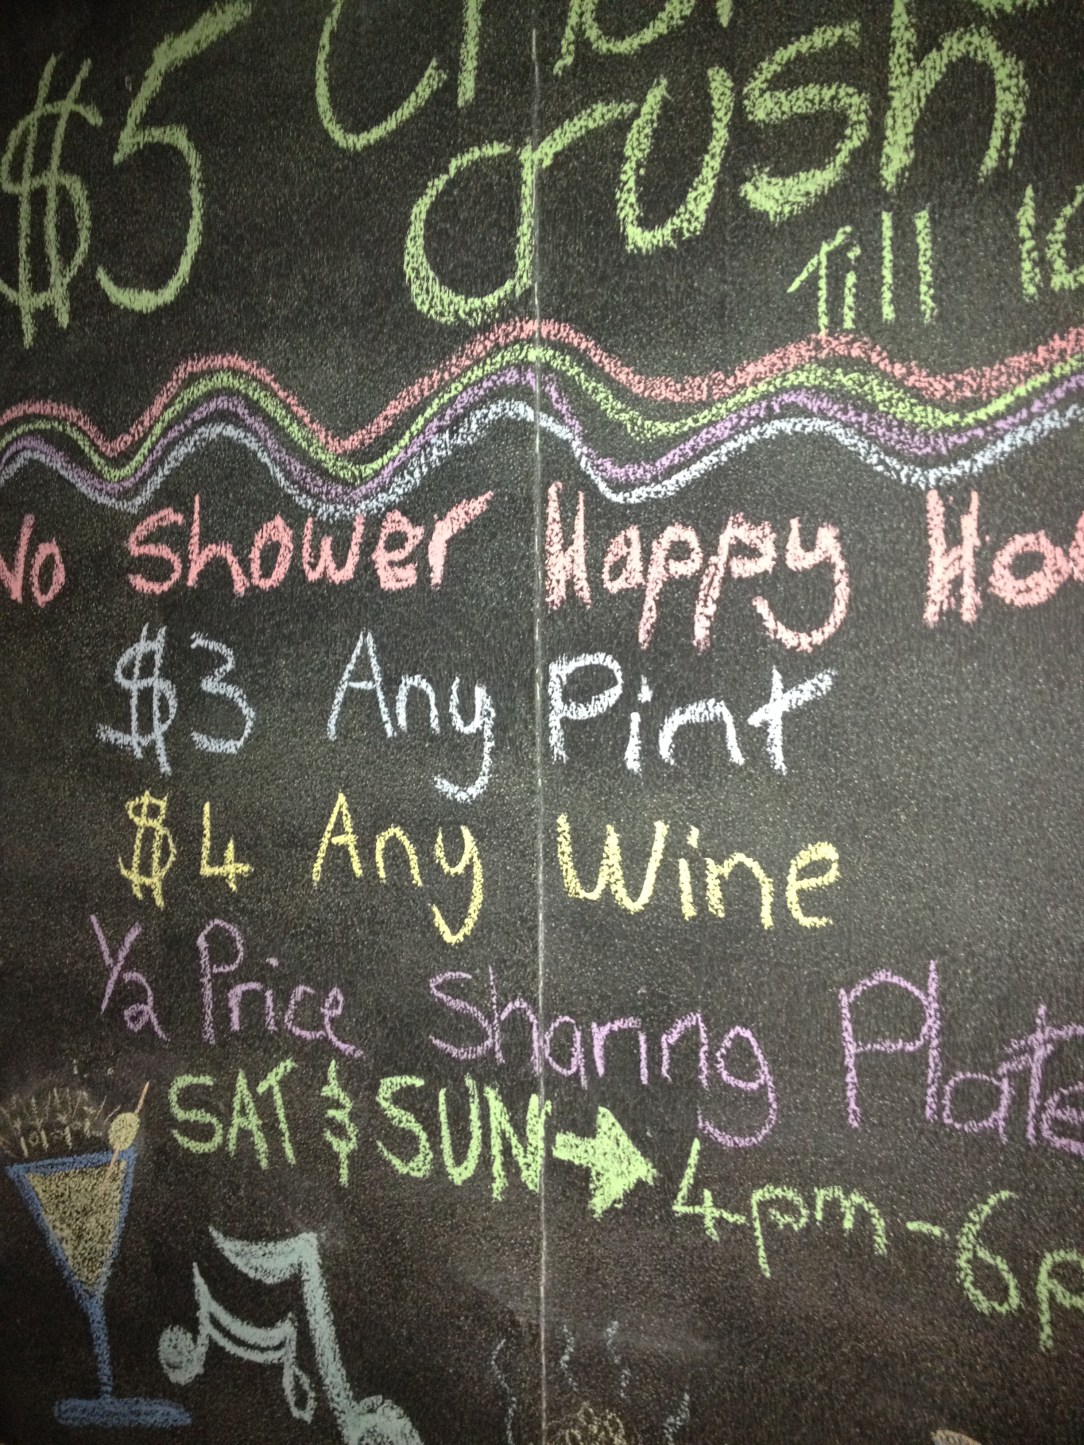 $5
crush
Till
No Shower Happy
$3 Any Pint
$4 Any Wine
1/2 Price Sharing
SAT & SUN → 4pm-6p